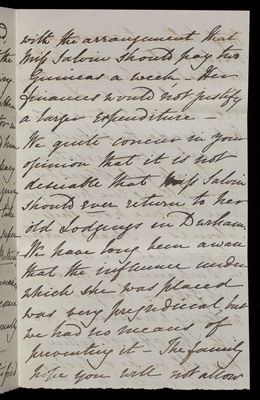 with the arrangement that
Miss Salvin should pay two
Guineas a week – Her
finances would not justify
a larger expenditure –
We quite concur in your
opinion that it is not
desirable that Miss Salvin
should ever return to her
old Lodgings in Durham.
We have long been aware
that the influence under
which she was placed
was very prejudicial, but
we had no means of
preventing it – The family
hope you will not allow